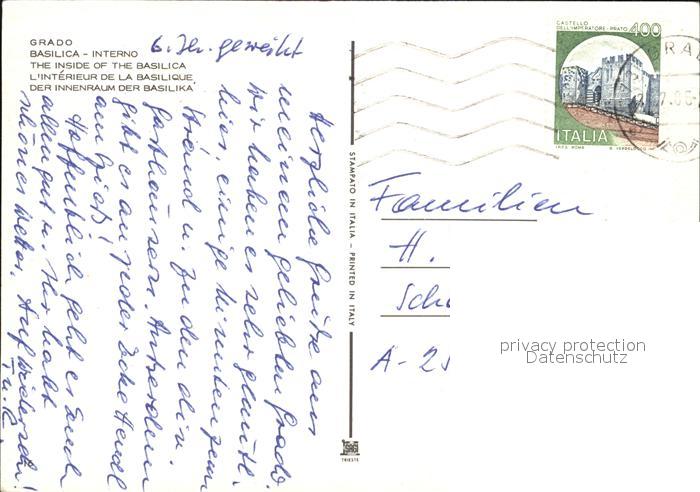 GRADO
BASILICA - INTERNO
THE INSIDE OF THE BASILICA
L'INTÉRIEUR DE LA BASILIQUE
DER INNENRAUM DER BASILIKA
6. Jh. geweiht
Herzliche Grüße aus
meinem geliebten Grado.
Wir haben es sehr
hier, einige Minuten zum
Strand u. zu den div.
Gasthäusern. Außerdem
gibt es an jeder Ecke
am Grieß!
Hoffentlich geht es Euch
allen gut u. Ihr habt
schönes Wetter. Auf Wiedersehn!
STAMPATO IN ITALIA - PRINTED IN ITALY
TRIESTE
CASTELLO
DELL'IMPERATORE - PRATO 400
ITALIA
I.P.Z.S. ROMA
GRA
Familien
H.
Sch
A-2
privacy protection
Datenschutz